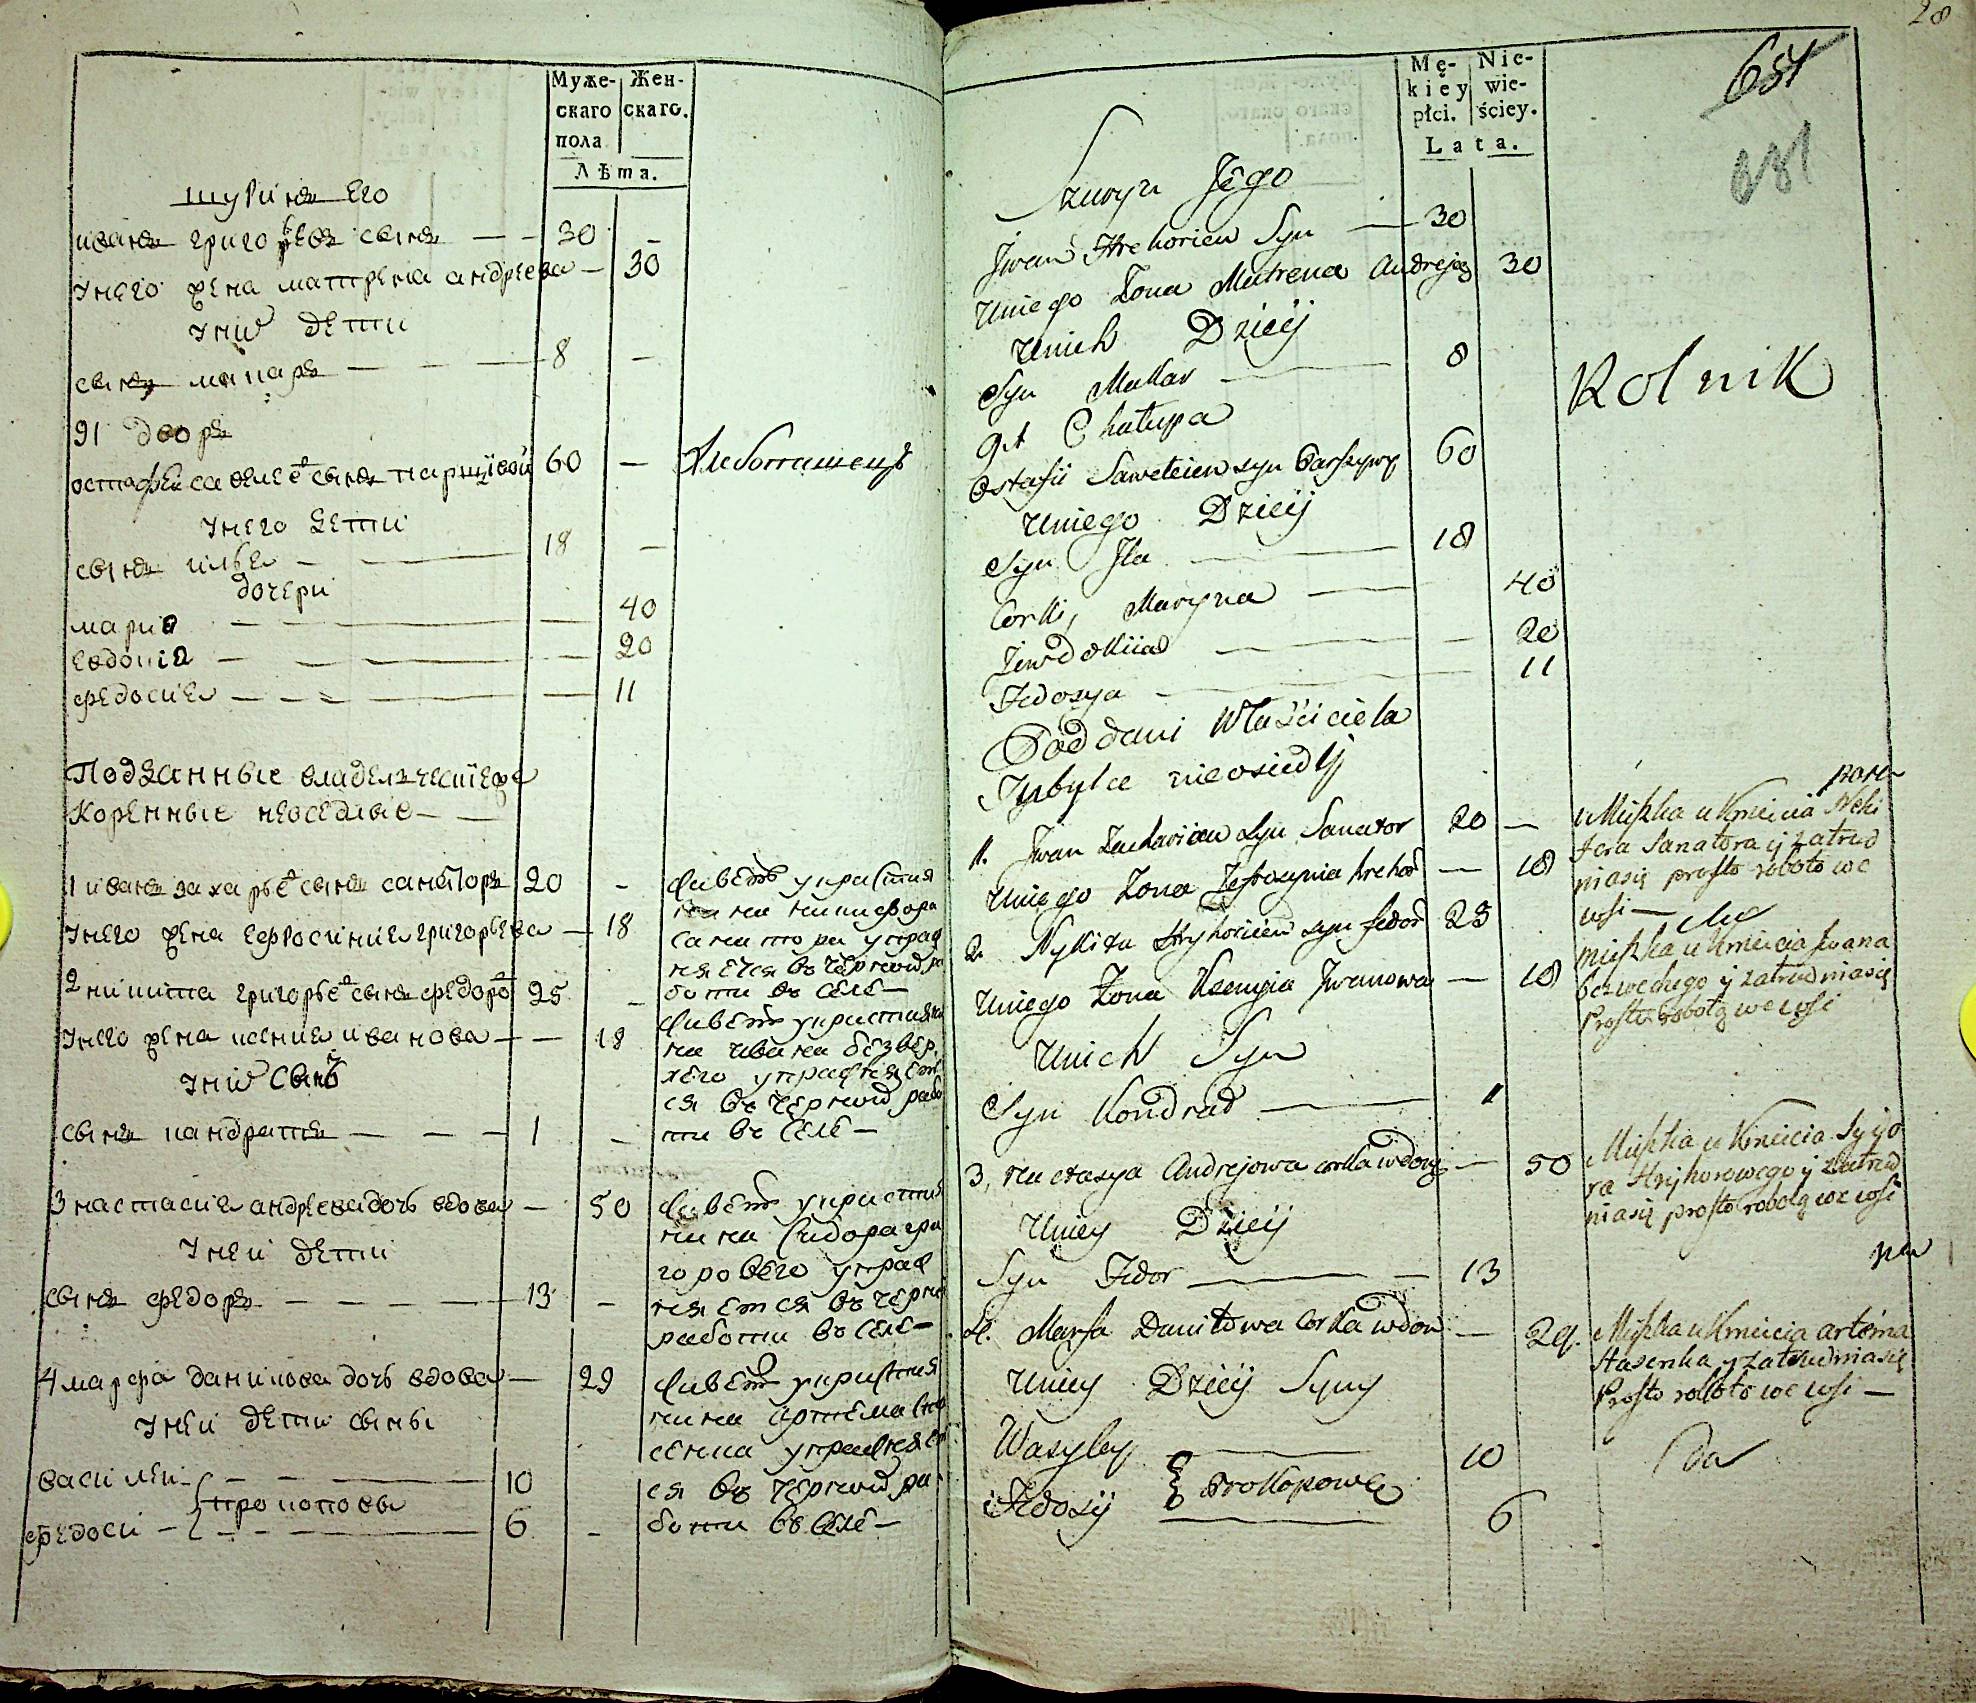 Муже-
скаго
пола
Жен-
скаго.
Лѣта.
шуринъ его
иванъ григорьевъ сынъ — — 30 —
унего жена матрена андреева — 30
уних дети
сынъ макаръ — — — 8 —
91 дворъ
остафеи савелев сынъ паршивои 60 — Хлебопашецъ
унего дети
сынъ илья — — 18 —
дочери
мариа — — — 40
евдокиа — — — 20
федосия — — — 11
Подданные владелческие
Коренные неоседлые — —
1 иванъ захарьев сынъ санаторъ 20 — живетъ укристия
нина никифора
санатора упраж
няется въ черной ра
боти въ селе —
унего жена ефросиния григорьева — 18
2 никита григорьев сынъ федоров 25 — живетъ укристия
нина ивана безвер
хего упражняет
ся въ черной рабо
ти въ селе —
унего жена ксения иванова — — 18
уних сынъ
сынъ кандратъ — — — 1 —
3 настасия андреева дочь вдова — 50 живетъ укристия
нина сидора гри
горового упраж
няется въ черной
работи въ селе —
уней дети
сынъ федоръ — — — — 13 —
4 марфа данилова дочь вдова — 29 живетъ укристия
нина артема ста
сенка упражняет
ся въ черной ра
боти въ селе —
уней дети сыны
василей — — — 10
прокоповы
федоси — — — 6 —
28
Mę-
kiey
płci.
Nie-
wie-
ściey.
Lata.
651
681
Szuryn Jego
Jwan Hrehoriew Syn — 30
Uniego Zona Matrena Andrejew 30
Unich Dzieij
Syn Makar — 8
91 Chałupa
Rolnik
Ostafii Saweleiew syn Parszywy 60
Uniego Dzieij
Syn Jla — 18
Corki, Maryna — 40
Jewdokiia — 20
Fedosya — 11
Poddani Właściciela
Tubylce nieosiedli
1. Jwan Zachariew Syn Sanator 20 — Miszka u Kmiecia Neki
fera Sanatora ij zatrud
niasię prosto roboto we
wsi —
Uniego Zona Jefrosynia Hrehor — 18
2. Nykita Hryhoriiew syn fedor 25
Miszka u Kmiecia Jwana
bezwechego ij zatrudniasię
Prosto robotą we wsi
Uniego Zona Ksenyia Jwanowa — 18
Unich Syn
Syn Kondrad — 1
3, Nastasya Andrejowa corka wdowa — 50 Miszka u Kmiecia Syijo
ra Hryhorowego ij zatrud
niasię prosto robotą we wsi
Uniey Dzieij
Syn Fedor — 13
4. Marfa Daniłowa Corka wdow — 29. Miszka u Kmiecia artema
Stasenka ij zatrudniasię
Prosto roboto we wsi —
Uniey Dzieij Syny
Wasyley — 10
Prokopowe
i Fedosij — 6